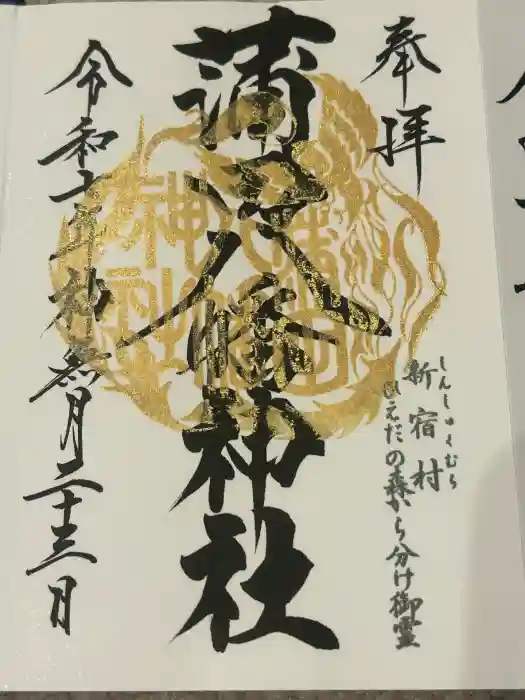 奉拝
しんしゅくむら
新宿村
ひえだの森から分け御霊
蒲田八幡神社
令和七年神無月二十三日